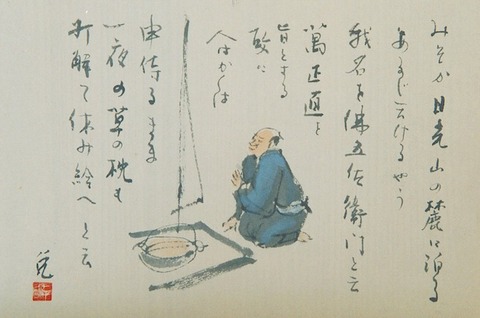 みそか日光山の麓に泊る
あるじの云けるやう
我名を佛五左衛門と云
萬正直を
旨とする
故に
人かくは
申侍るまま
一夜の草の枕も
打解て休み給へと云